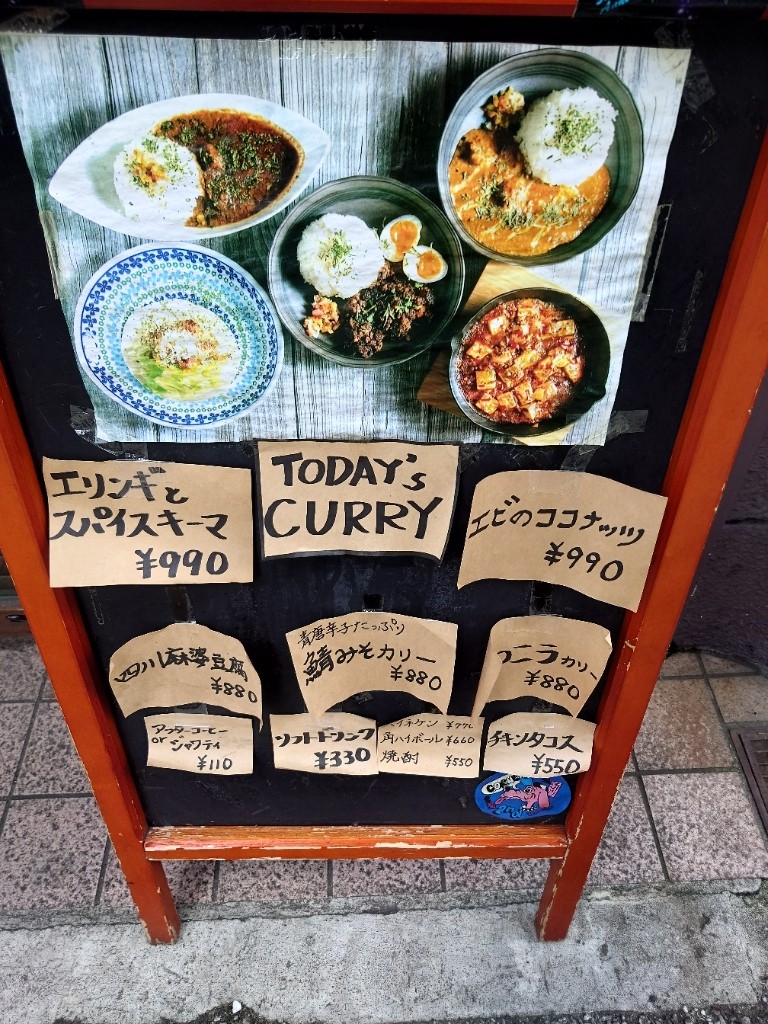 エリンギと
スパイスキーマ
¥990
TODAY's
CURRY
エビのココナッツ
¥990
四川麻婆豆腐
¥880
青唐辛子たっぷり
鯖みそカリー
¥880
カリー
¥880
アフターコーヒー
or ジャワティ
¥110
ソフトドリンク
¥330
角ハイボール ¥660
焼酎 ¥550
チキンタコス
¥550